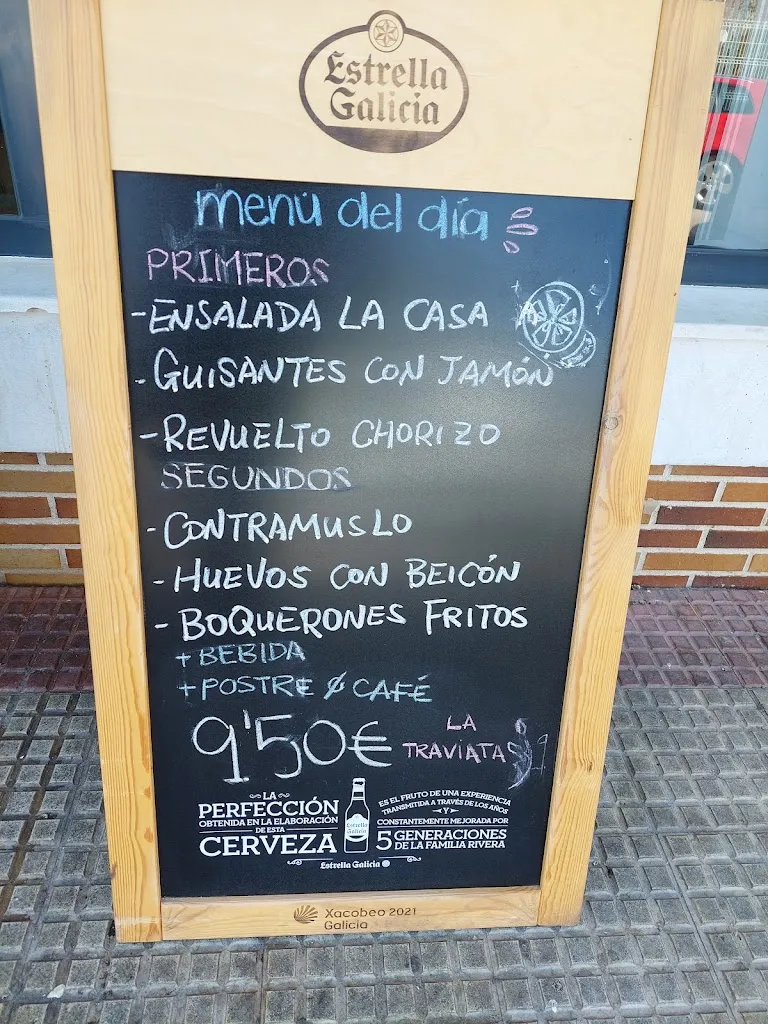 Estrella
Galicia
menú del día
PRIMEROS
- ENSALADA LA CASA
- GUISANTES CON JAMÓN
- REVUELTO CHORIZO
SEGUNDOS
- CONTRAMUSLO
- HUEVOS CON BEICÓN
- BOQUERONES FRITOS
+ BEBIDA
+ POSTRE Ó CAFÉ
9'50€
LA
TRAVIATA
LA
PERFECCIÓN
OBTENIDA EN LA ELABORACIÓN
DE ESTA
CERVEZA
Estrella
Galicia
ES EL FRUTO DE UNA EXPERIENCIA
TRANSMITIDA A TRAVÉS DE LOS AÑOS
Y
CONSTANTEMENTE MEJORADA POR
5 GENERACIONES
DE LA FAMILIA RIVERA
Estrella Galicia
Xacobeo 2021
Galicia